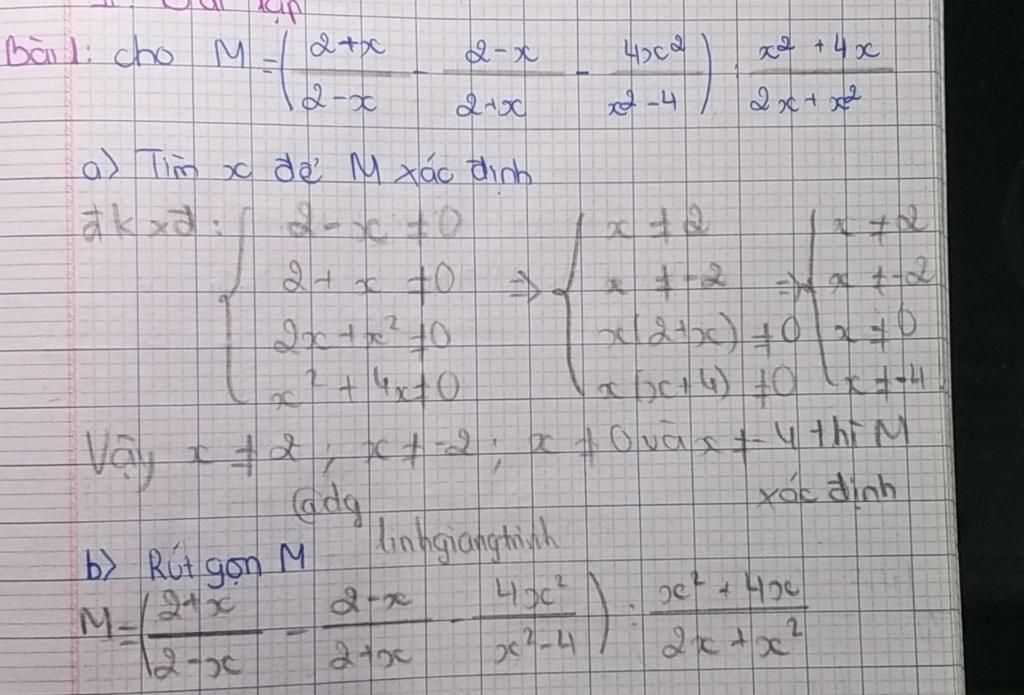 Bài 1: cho M = ( (2+x)/(2-x) - (2-x)/(2+x) - 4x²/(x²-4) ) : (x²+4x)/(2x+x²)
a) Tìm x để M xác định
đkxđ: { 2-x ≠ 0 ⇒ { x ≠ 2 ⇒ { x ≠ 2
2+x ≠ 0 x ≠ -2 x ≠ -2
2x+x² ≠ 0 x(2+x) ≠ 0 x ≠ 0
x²+4x ≠ 0 x(x+4) ≠ 0 x ≠ -4
Vậy x ≠ 2 ; x ≠ -2 ; x ≠ 0 và x ≠ -4 thì M
xác định
@dg
linhgiangtrinh
b) Rút gọn M
M = ( (2+x)/(2-x) - (2-x)/(2+x) - 4x²/(x²-4) ) : (x²+4x)/(2x+x²)